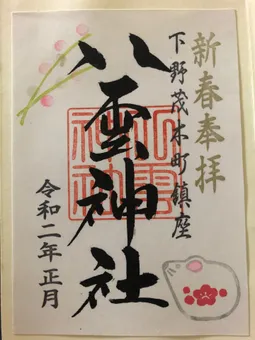 新春奉拝
下野茂木町鎮座
八雲神社
八雲神社
令和二年正月